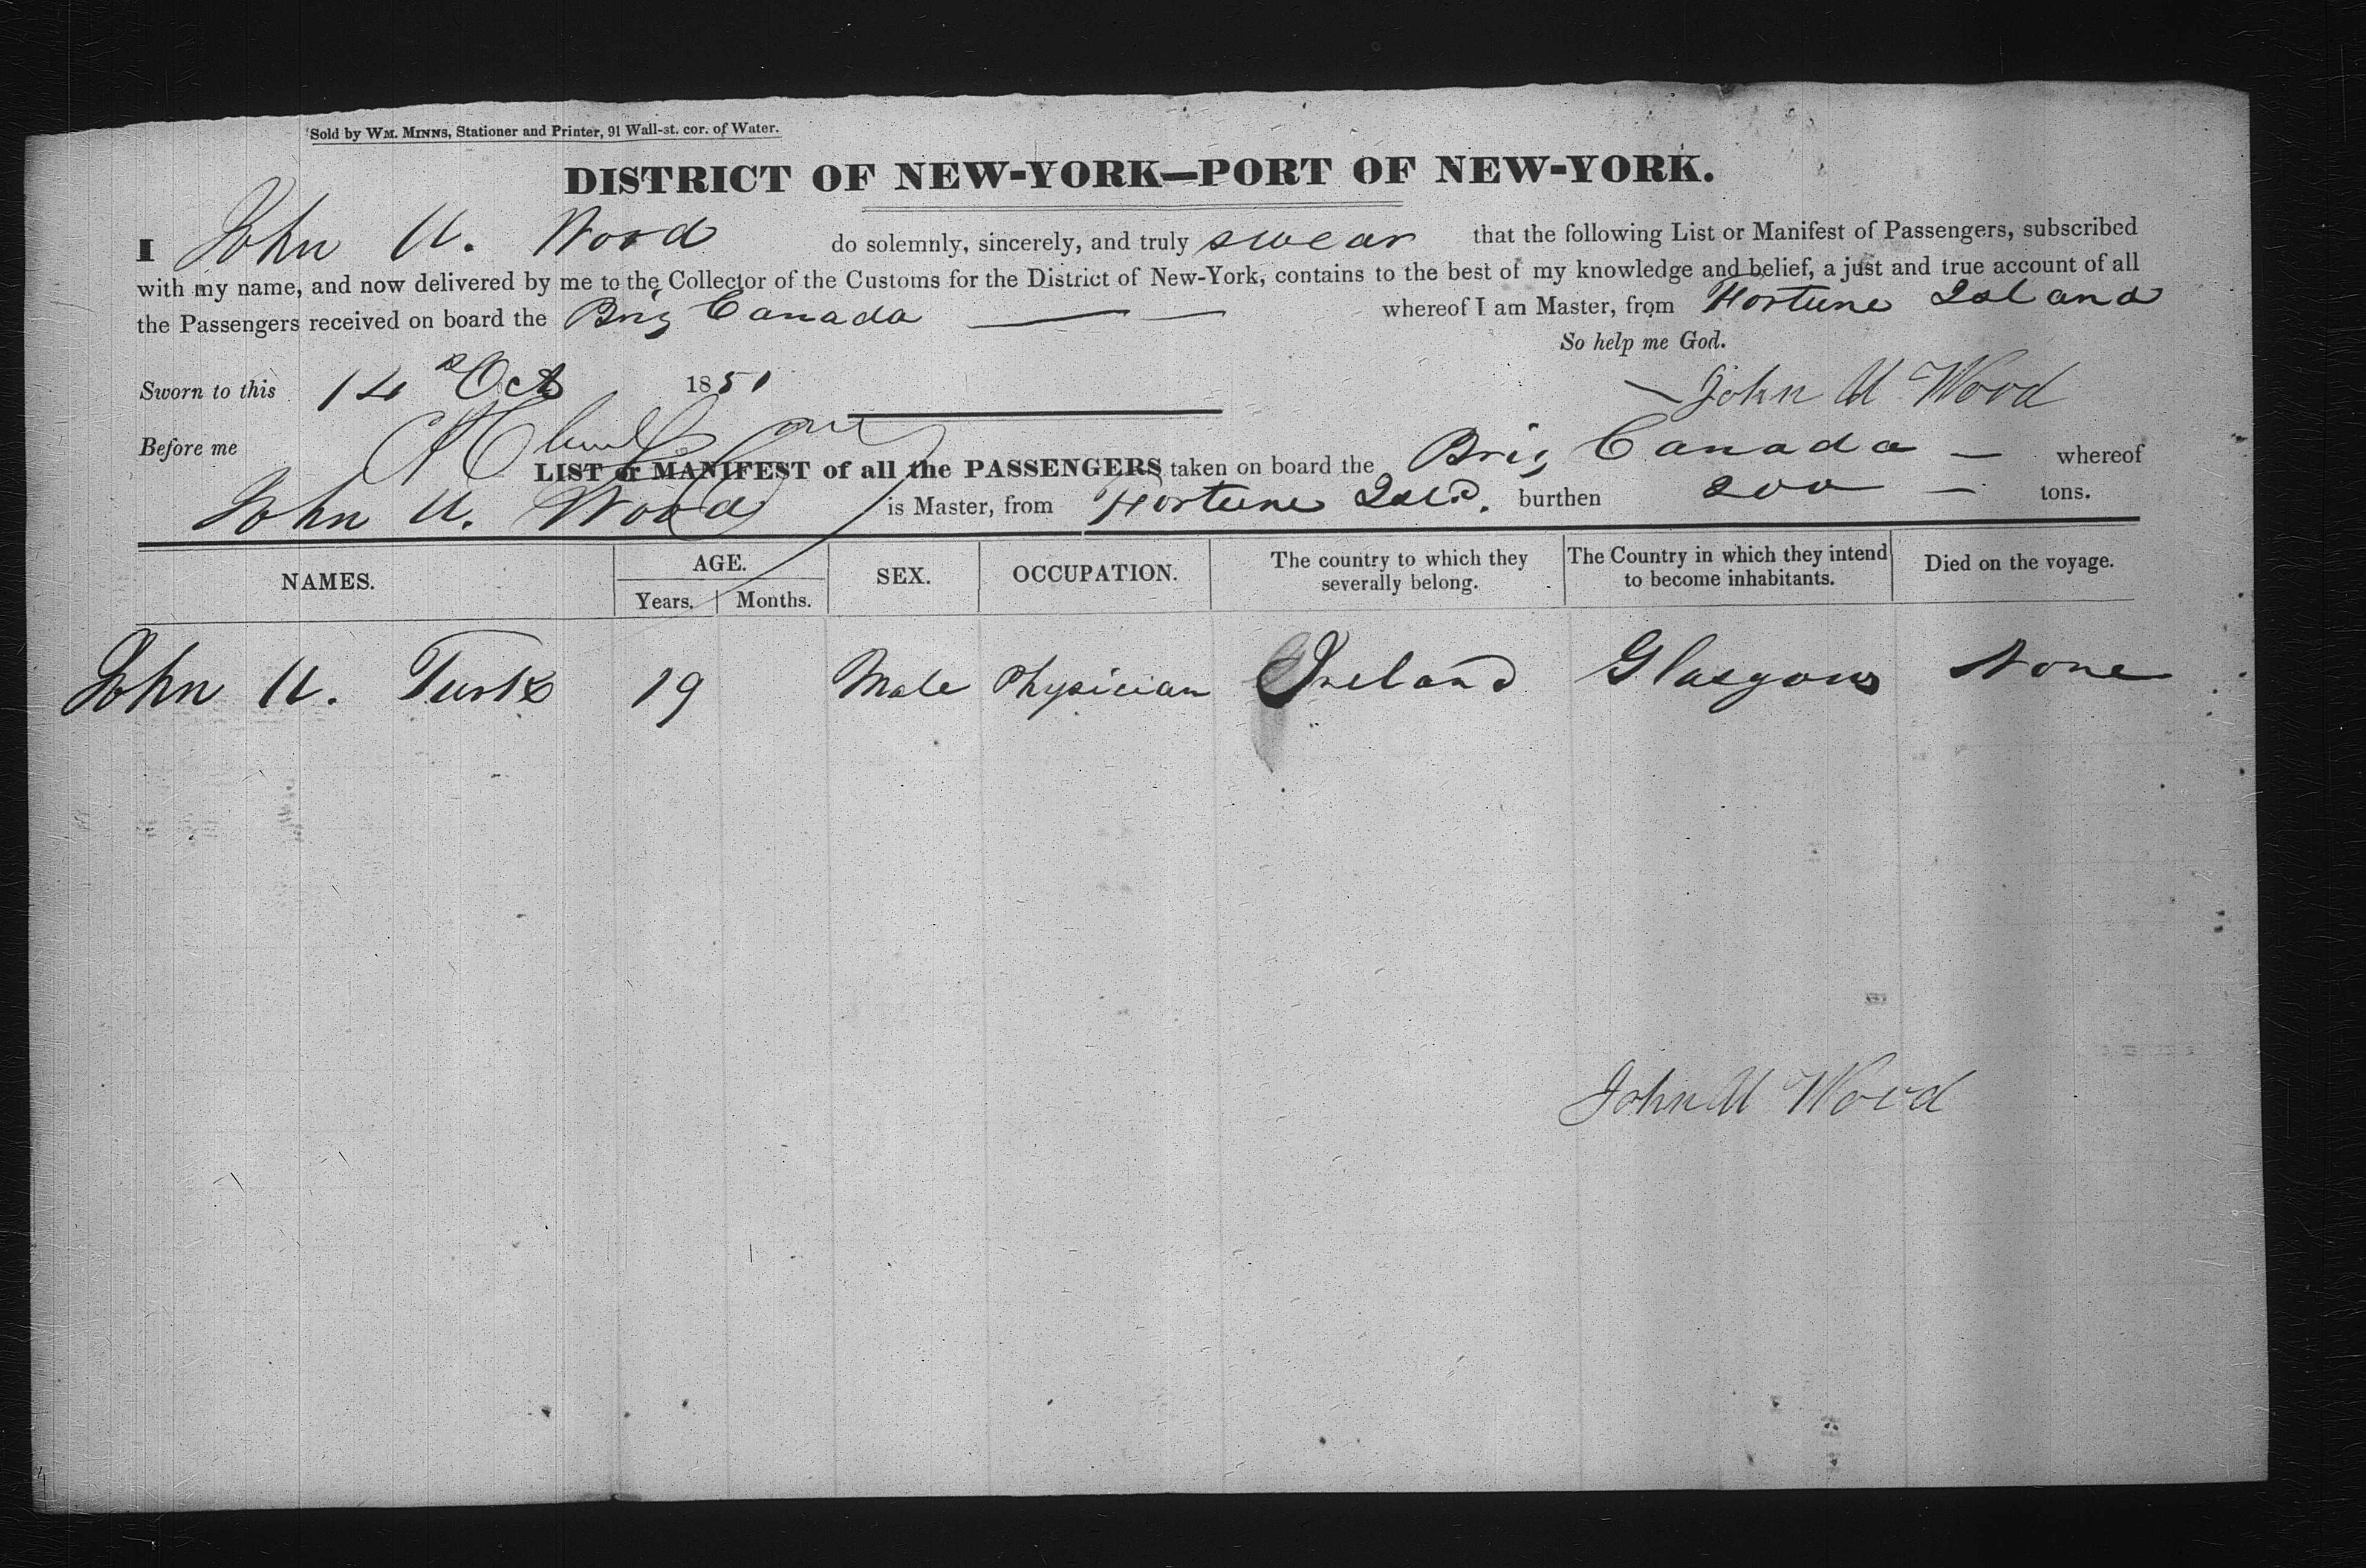 Sold by WM. MINNS, Stationer and Printer, 91 Wall-st. cor. of Water.
DISTRICT OF NEW-YORK—PORT OF NEW-YORK.
I John U. Wood do solemnly, sincerely, and truly swear that the following List or Manifest of Passengers, subscribed
with my name, and now delivered by me to the Collector of the Customs for the District of New-York, contains to the best of my knowledge and belief, a just and true account of all
the Passengers received on board the Brig Canada — — whereof I am Master, from Fortune Island
So help me God.
Sworn to this 14 Oct 1851
John U Wood
Before me
LIST or MANIFEST of all the PASSENGERS taken on board the Brig Canada — whereof
John U. Wood is Master, from Fortune Isld. burthen 200 — tons.
NAMES. AGE. SEX. OCCUPATION. The country to which they severally belong. The Country in which they intend to become inhabitants. Died on the voyage.
Years. Months.
John U. 19 Male Physician Ireland Glasgow None
John U Wood